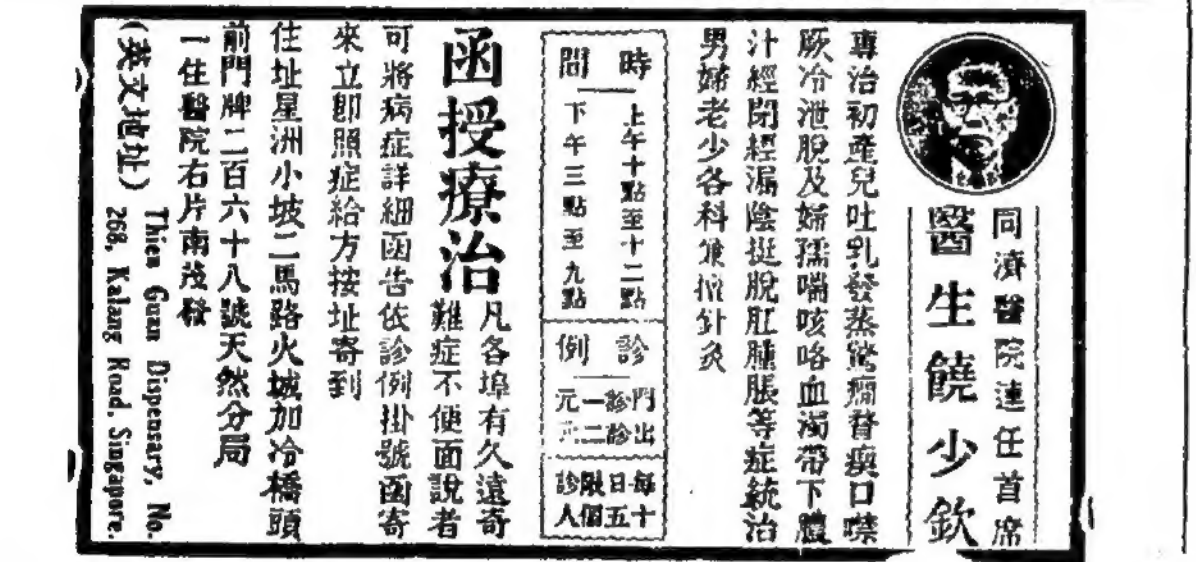 同濟醫院連任首席
醫生饒少欽
專治初產兒吐乳發蒸驚癇瞀瘼口噤
厥冷泄脫及婦孺喘咳咯血濁帶下體
汁經閉經漏陰挺脫肛腫脹等症統治
男婦老少各科兼擅針灸
時間
上午十點至十二點
下午三點至九點
診例
門診一元
出診二元
每日限診
十五個人
函授療治
凡各埠有久遠奇
難症不便面說者
可將病症詳細函告依診例掛號函寄
來立卽照症給方按址寄到
住址星洲小坡二馬路火城加冷橋頭
前門牌二百六十八號天然分局
一住醫院右片南茂發
(英文地址)
Thien Guan Dispensary, No.
268, Kalang Road, Singapore.